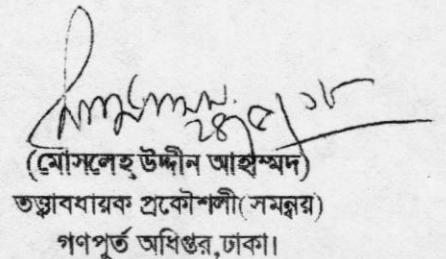 ২৪/৫/১৮
(মোসলেহ উদ্দীন আহাম্মদ)
তত্ত্বাবধায়ক প্রকৌশলী(সমন্বয়)
গণপূর্ত অধিপ্তর,ঢাকা।